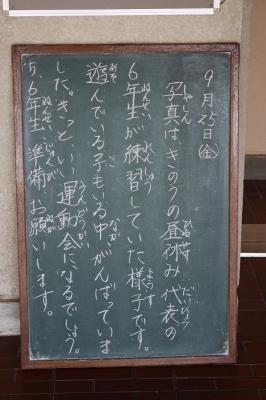 9月25日(金)
写真は、きのうの昼休み代表の
6年生が練習していた様子です。
遊んでいる子もいる中、がんばっていま
した。きっと、いい運動会になるでしょう。
5、6年生、準備お願いします。